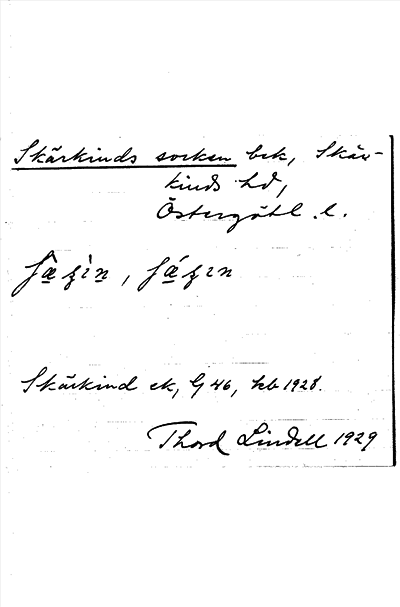 Skärkinds socken bck, Skär-
kinds hd,
Östergötl. l.
Skärkind ek, G 46, hb 1928.
Thord Lindell 1929